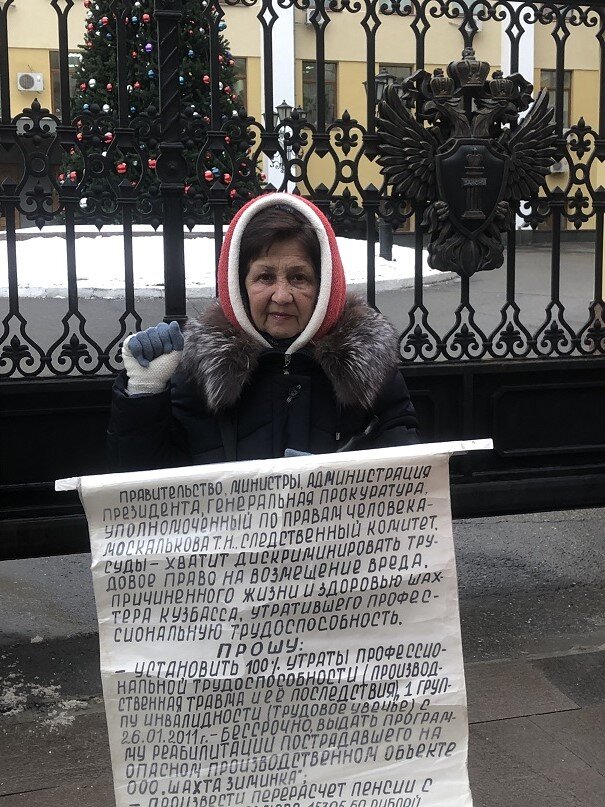 ПРАВИТЕЛЬСТВО, МИНИСТРЫ, АДМИНИСТРАЦИЯ
ПРЕЗИДЕНТА, ГЕНЕРАЛЬНАЯ ПРОКУРАТУРА,
УПОЛНОМОЧЕННЫЙ ПО ПРАВАМ ЧЕЛОВЕКА-
МОСКАЛЬКОВА Т.Н., СЛЕДСТВЕННЫЙ КОМИТЕТ,
СУДЫ – ХВАТИТ ДИСКРИМИНИРОВАТЬ ТРУ-
ДОВОЕ ПРАВО НА ВОЗМЕЩЕНИЕ ВРЕДА,
ПРИЧИНЕННОГО ЖИЗНИ И ЗДОРОВЬЮ ШАХ-
ТЕРА КУЗБАССА, УТРАТИВШЕГО ПРОФЕС-
СИОНАЛЬНУЮ ТРУДОСПОСОБНОСТЬ.
ПРОШУ:
– УСТАНОВИТЬ 100% УТРАТЫ ПРОФЕССИО-
НАЛЬНОЙ ТРУДОСПОСОБНОСТИ (ПРОИЗВОД-
СТВЕННАЯ ТРАВМА И ЕЁ ПОСЛЕДСТВИЯ), 1 ГРУП-
ПУ ИНВАЛИДНОСТИ (ТРУДОВОЕ УВЕЧЬЕ) С
26.01.2011г.- БЕССРОЧНО, ВЫДАТЬ ПРОГРАМ-
МУ РЕАБИЛИТАЦИИ ПОСТРАДАВШЕГО НА
ОПАСНОМ ПРОИЗВОДСТВЕННОМ ОБЪЕКТЕ
ООО „ШАХТА ЗИМИНКА".
– ПРОИЗВЕСТИ ПЕРЕРАСЧЕТ ПЕНСИИ С